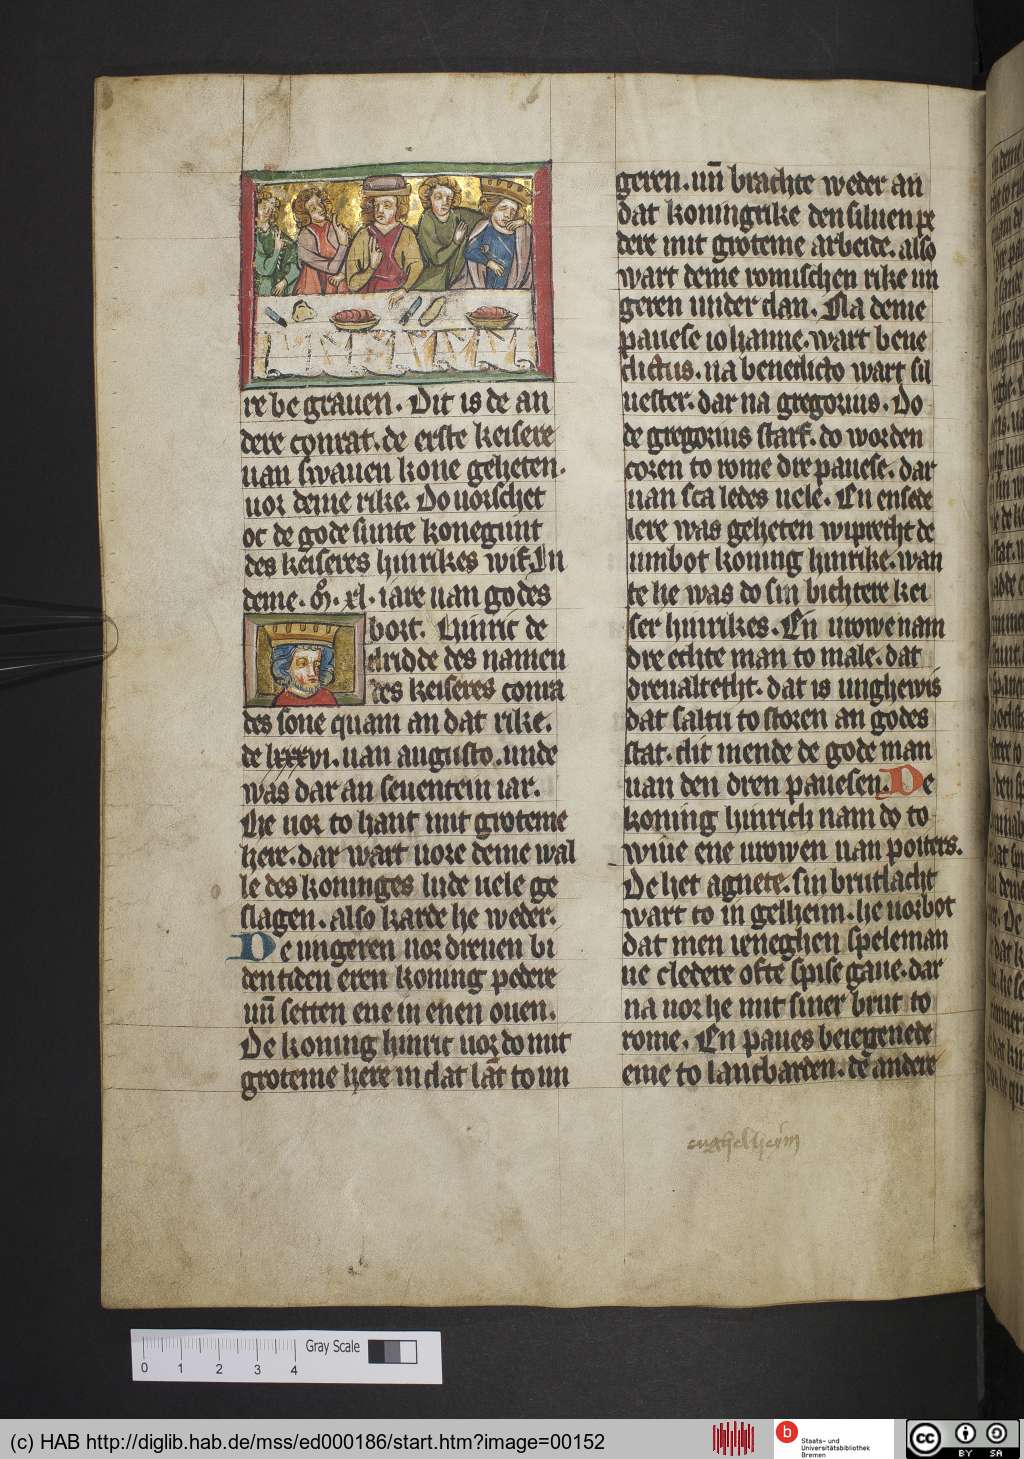 re be grauen. Dit is de an
dere conrat. de erste keisere
uan swauen kone geheten.
uor deme rike. Do uorschet
oc de gode sunte konegunt
des keiseres hinrikes wif. In
deme. M. xl. iare uan godes
bort. Hinric de
dridde des namen
des keiseres conra
des sone quam an dat rike.
de lxxxvi. uan augusto. unde
was dar an seuentein iar.
He uor to hant mit groteme
here. dar wart uore deme wal
le des koninges lude uele ge
slagen. also karde he weder.
De ungeren uordreuen bi
den tiden eren koning pedere
un̄ setten ene in enen ouen.
De koning hinric uor do mit
groteme here in dat lāt to un
geren. un̄ brachte weder an
dat koningrike den siluen pe
dere mit groteme arbeide. also
wart deme romischen rike un
geren under dan. Na deme
pauese iohanne. wart bene
dictus. na benedicto wart sil
uester. dar na gregorius. Do
de gregorius starf. do worden
coren to rome dre pauese. dar
uan sca ledes uele. En ensede
lere was geheten wiprecht de
umbot koning hinrike. wan
te he was do sin bichtere kei
ser hinrikes. En urowe nam
dre echte man to male. dat
dreualtecht. dat is unghewis
dat saltu to storen an godes
stat. dit mende de gode man
uan den dren pauesen. De
koning hinrich nam do to
wiue ene urowen uan poiters.
De het agnete. sin brutlacht
wart to in gelheim. he uorbot
dat men ieneghen speleman
ne cledere ofte spise gaue. dar
na uor he mit siner brut to
rome. En paues beiegenede
eme to lancbarden. de andere
enghelheim
Gray Scale
0 1 2 3 4
(c) HAB http://diglib.hab.de/mss/ed000186/start.htm?image=00152
b
Staats- und
Universitätsbibliothek
Bremen
cc
BY SA